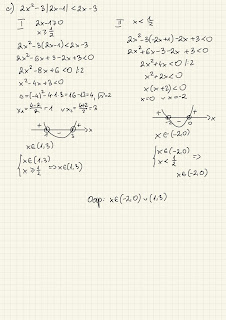 c) 2x²-3|2x-1|<2x-3
I 2x-1≥0
x≥1/2
2x²-3(2x-1)<2x-3
2x²-6x+3-2x+3<0
2x²-8x+6<0 /:2
x²-4x+3<0
D=(-4)²-4·1·3=16-12=4, √=2
x₁=(4-2)/2=1 v x₂=(4+2)/2=3
+ - + x
1 3
x∈(1,3)
{x∈(1,3)
x≥1/2 ⇒ x∈(1,3)
II x<1/2
2x²-3(-2x+1)-2x+3<0
2x²+6x-3-2x+3<0
2x²+4x<0 /:2
x²+2x<0
x(x+2)<0
x=0 v x=-2
+ - + x
-2 0
x∈(-2,0)
{x∈(-2,0)
x<1/2 ⇒
x∈(-2,0)
Odp: x∈(-2,0)∪(1,3)